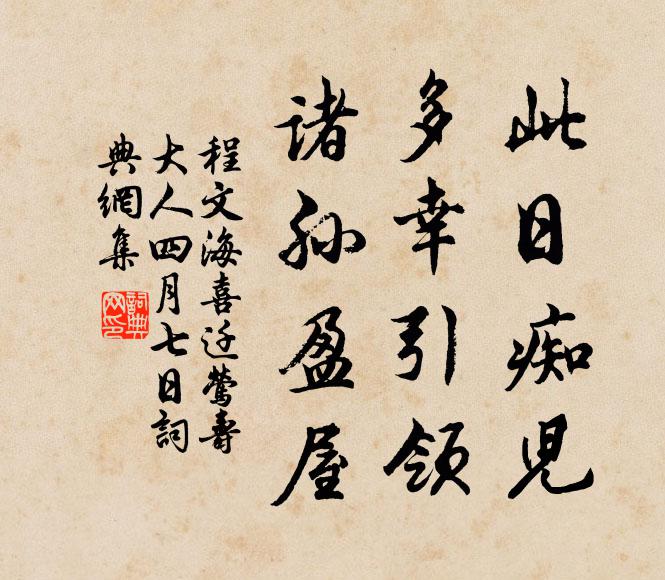 此日痴児
多幸引領
諸孫盈屋
程文海喜迁鶯壽
大人四月七日詞
典網集
詞典
网印